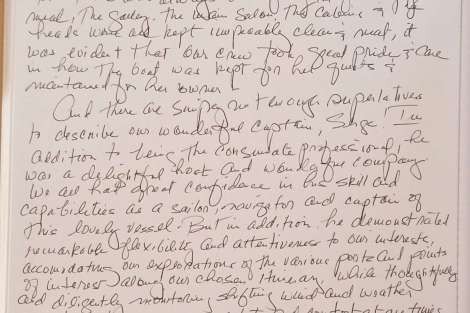 meal, The Galley, the main Salon, the Cabins & if
heads were all kept impeccably clean & neat, it
was evident that our crew took great pride & care
in how the boat was kept for her guests &
maintained for her owner!
And there are simply not enough superlatives
to describe our wonderful captain, Serge! In
addition to being the consumate professional, he
was a delightful host and wonderful company.
We all had great confidence in his skill and
capabilities as a sailor, navigator and captain of
this lovely vessel. But in addition he demonstrated
remarkable flexibility and attentiveness to our interests,
accomodating our explorations of the various ports and points
of interest along our chosen itinerary, while thoughtfully
and diligently monitoring shifting wind and weather
at times